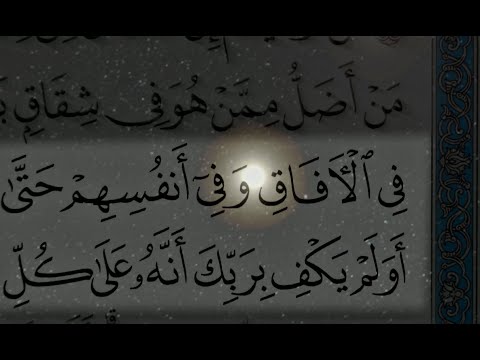 مَنْ أَضَلُّ مِمَّنْ هُوَ فِي شِقَاقٍۭ
فِي ٱلْأٓفَاقِ وَفِيٓ أَنفُسِهِمْ حَتَّىٰ
أَوَلَمْ يَكْفِ بِرَبِّكَ أَنَّهُۥ عَلَىٰ كُلِّ